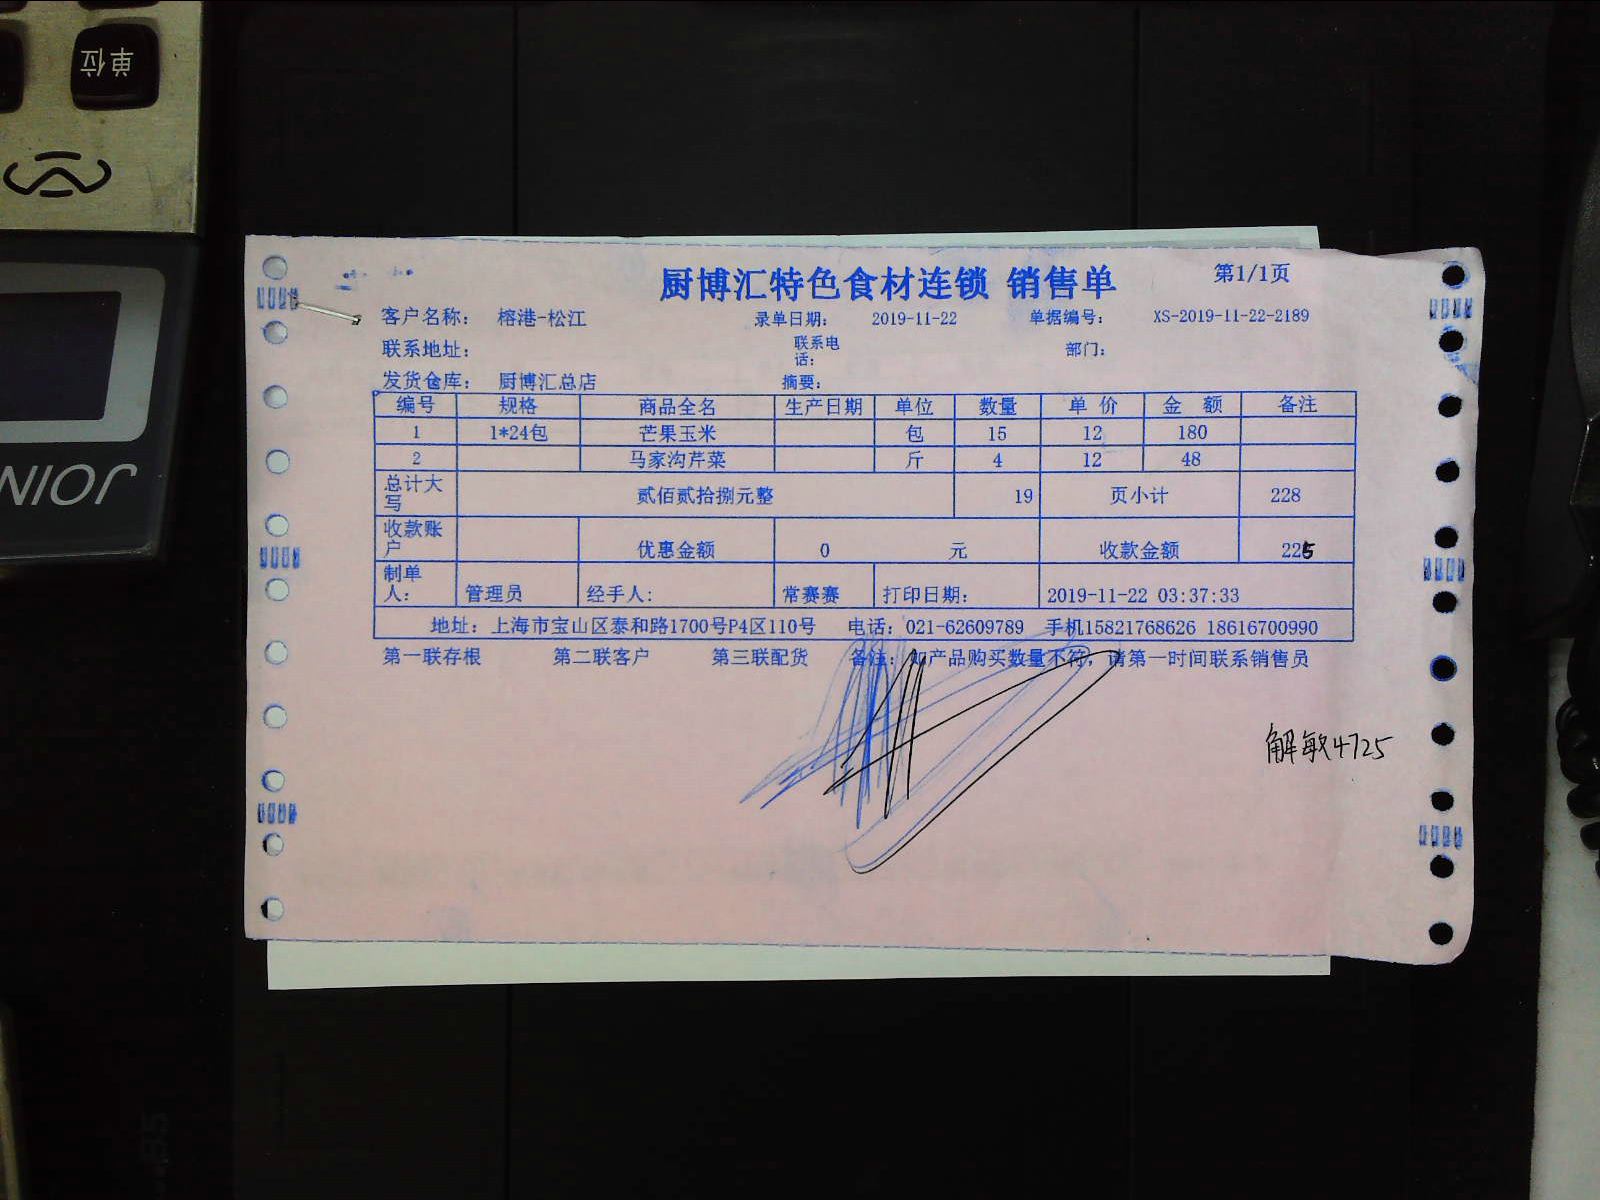 单位
JOIN
厨博汇特色食材连锁 销售单 第1/1页
客户名称： 榕港-松江 录单日期： 2019-11-22 单据编号： XS-2019-11-22-2189
联系地址： 联系电话： 部门：
发货仓库： 厨博汇总店 摘要：
编号 规格 商品全名 生产日期 单位 数量 单 价 金 额 备注
1 1*24包 芒果玉米 包 15 12 180
2 马家沟芹菜 斤 4 12 48
总计大写 贰佰贰拾捌元整 19 页小计 228
收款账户 优惠金额 0 元 收款金额 225
制单人： 管理员 经手人： 常赛赛 打印日期： 2019-11-22 03:37:33
地址：上海市宝山区泰和路1700号P4区110号 电话：021-62609789 手机15821768626 18616700990
第一联存根 第二联客户 第三联配货 备注：如产品购买数量不符，请第一时间联系销售员
解敏4725